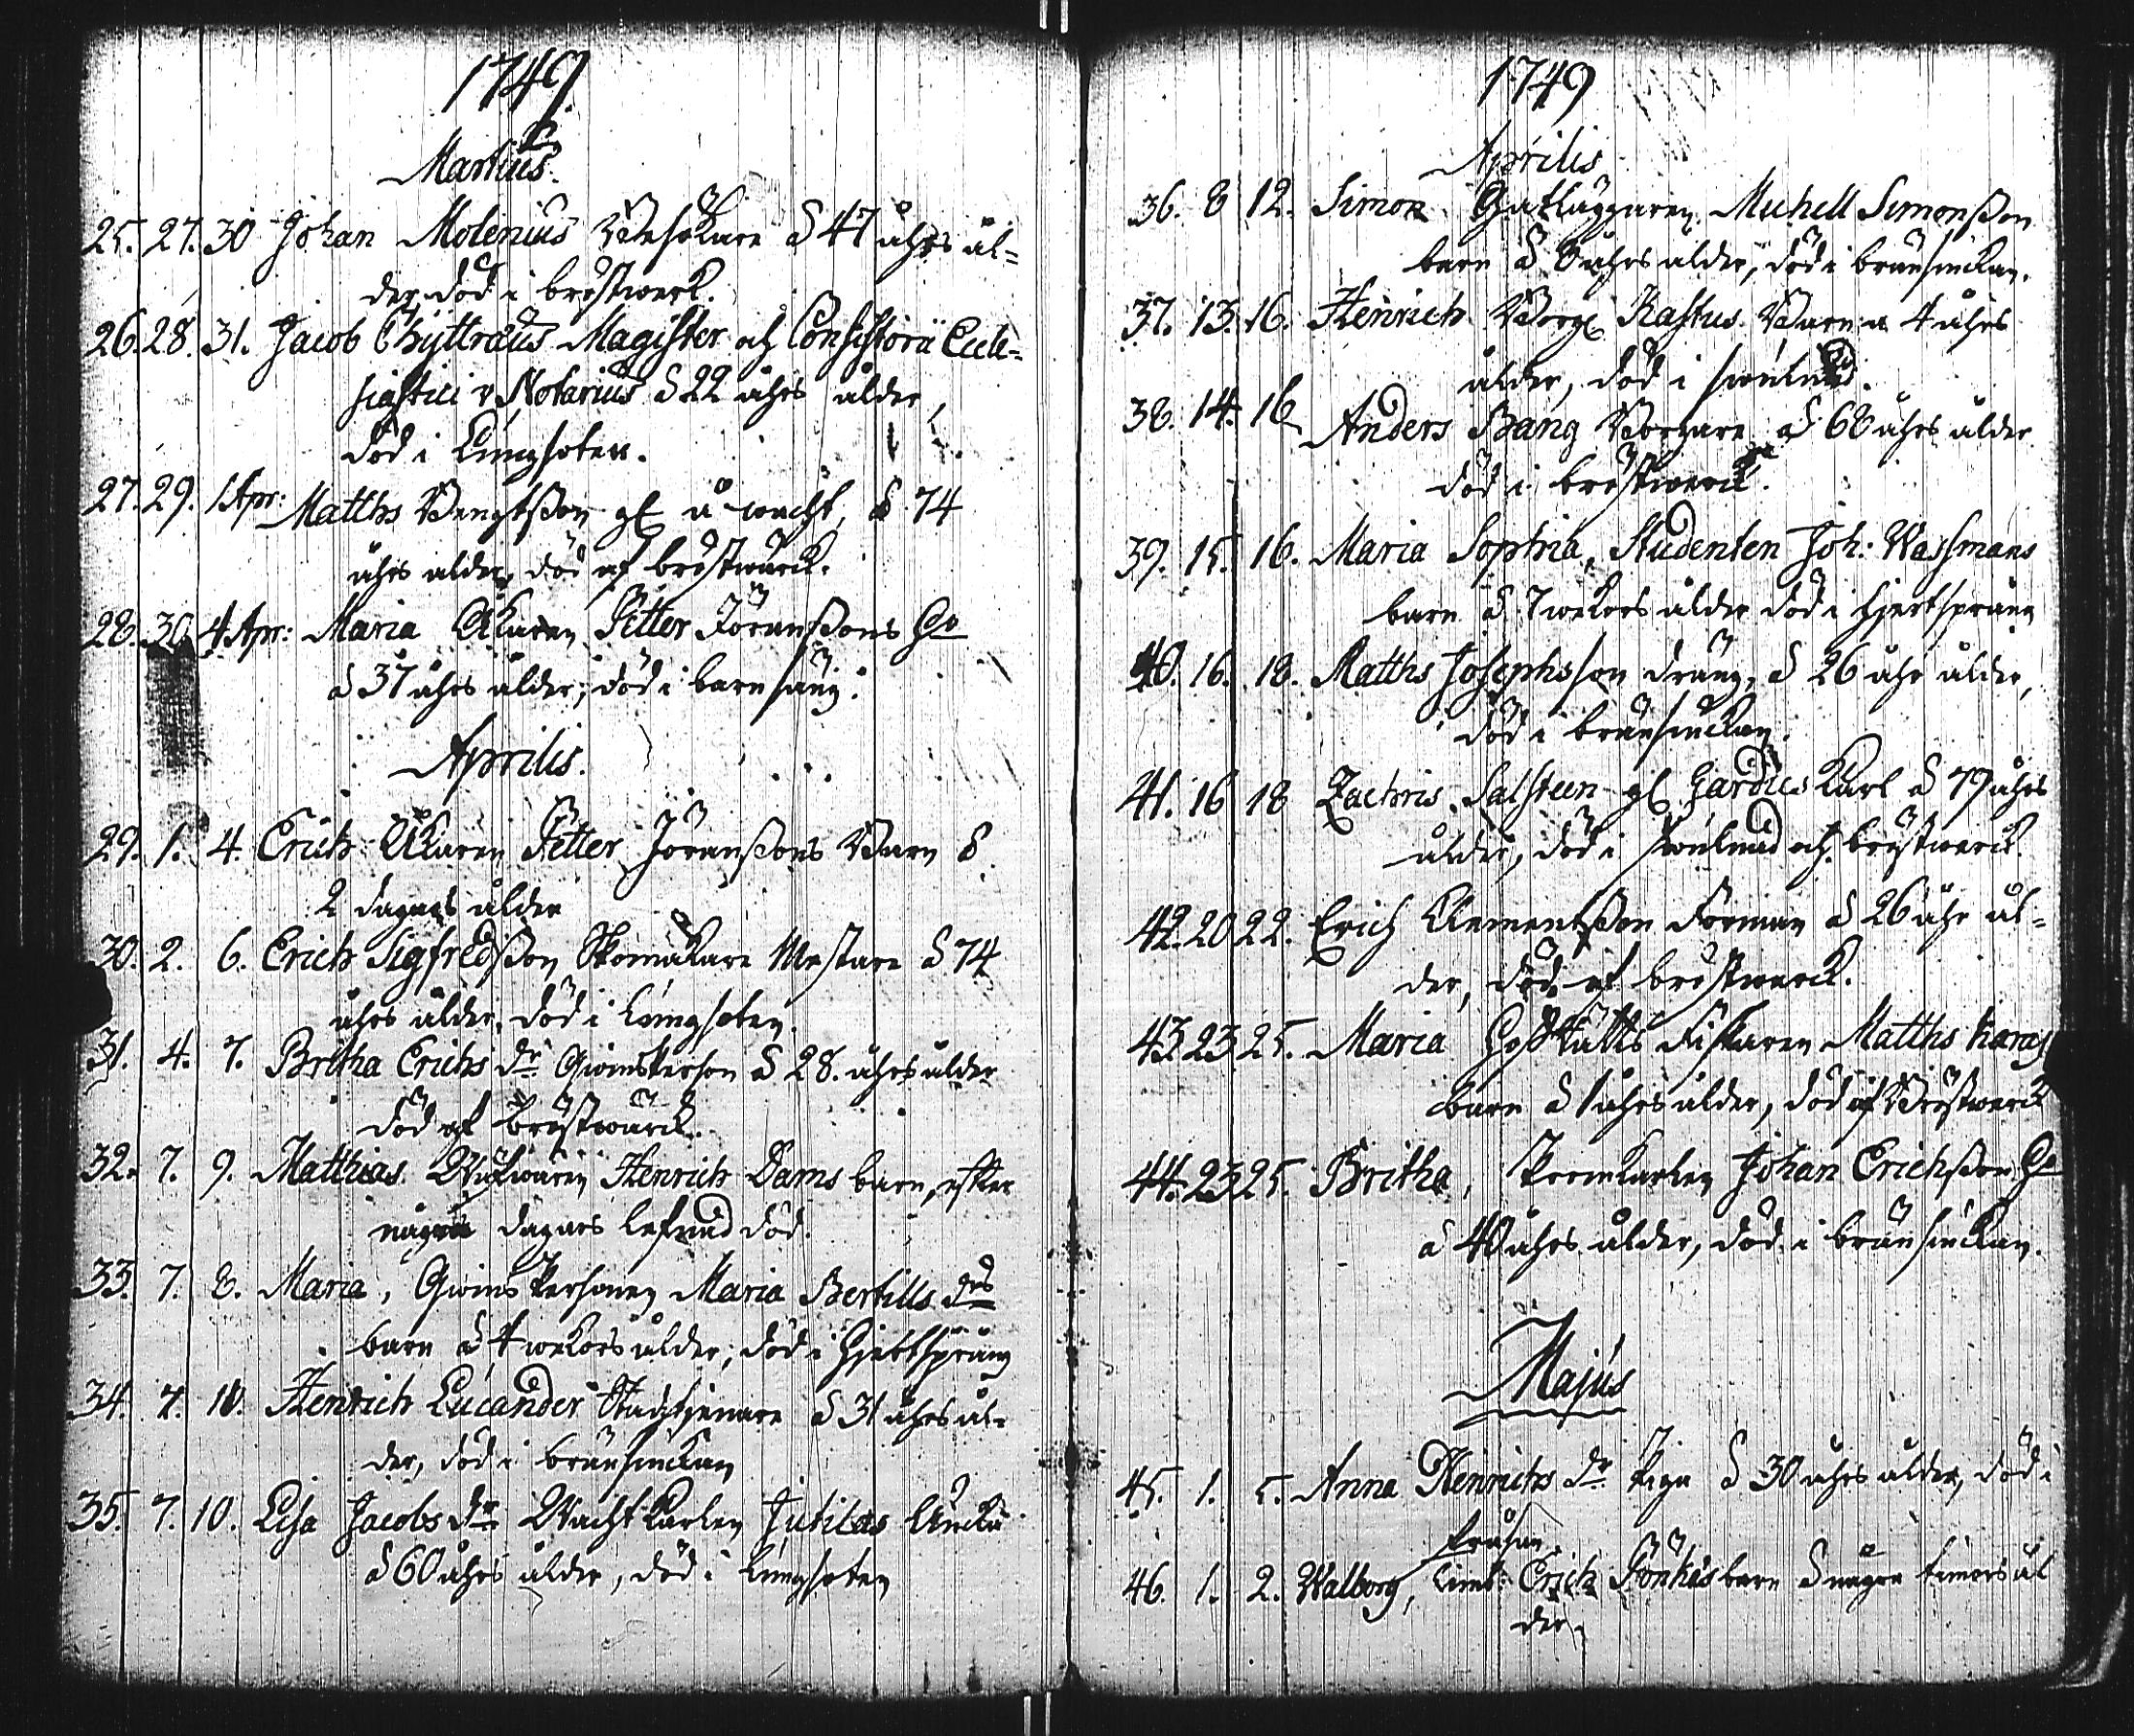 1749.
Martius.
25. 27. 30 Johan Molenius å 47 åhrs ål=
der, död i bröstwerk.
26. 28. 31. Jacob Chyttraus Magister och Consistorii Eccle-
siastici v Notarius å 22 åhrs ålder,
död i Lungsoten.
27. 29. 1 Apr: Matths Bengtsson gl å wacht, å 74
åhrs ålder, död af bröstwärck.
28. 30. 4 Apr: Maria Åkaren Petter Jöranssons Ho
å 37 åhrs ålder, död i barnsäng.
Aprilis.
29. 1. 4. Erich Åkaren Petter Jöranssons Barn å
2 dagars ålder
30. 2. 6. Erich Sigfredsson Skomakare Mestare å 74
åhrs ålder, död i Lungsoten.
31. 4. 7. Britha Erichs dr Qwinsperson å 28. åhrs ålder
död af bröstwärck.
32. 7. 9. Matthias Henrich Dams barn, efter
några dagars lefnad död.
33. 7. 8. Maria, Qwins Personen Maria Bertills drs
barn å 4 wekors ålder, död i Hjertsprång
34. 7. 10. Henrich Lucander Stadstjenare å 31 åhrs ål=
der, död i brännsiuckan
35. 7. 10. Lisa Jacobs dr Wacht Karlen Jutilas Encka
å 60 åhrs ålder, död i Lungsoten
1749
Aprilis
36. 8 12. Simon Gatläggaren Michell Simonsson
barn å 8 åhrs ålder, död i brännsiuckan.
37. 13. 16. Henrich Borg: Kastus Barn a 4 åhrs
ålder, död i
38. 14. 16 Anders Bang Borgare å 68 åhrs ålder
död i bröstwerck.
39. 15. 16. Maria Sophia, Studenten Joh: Wassmans
barn å 7 wekors ålder död i Hjertsprång
40. 16. 18. Matths Josephsson dräng, å 26 åhr ålder,
död i brännsiuckan.
41. 16 18 Zachris Salsteen gl Gardies Karl å 79 åhrs
ålder, död i och bröstwerck.
42. 20 22. Erich Clementsson Borman å 26 åhr ål=
der, död af bröstwerck.
43. 23 25. Maria Fiskaren Matths
barn å 1 åhrs ålder, död af Bröstwerck
44. 23 25. Britha, Johan Erichsson Ho
å 40 åhrs ålder, död i brännsiuckan.
Majus
45. 1. 5. Anna Henrichs dr Piga å 30 åhrs ålder, död i
frosan.
46. 1. 2. Walborg, Timb: Erich barn å några timers ål
der.